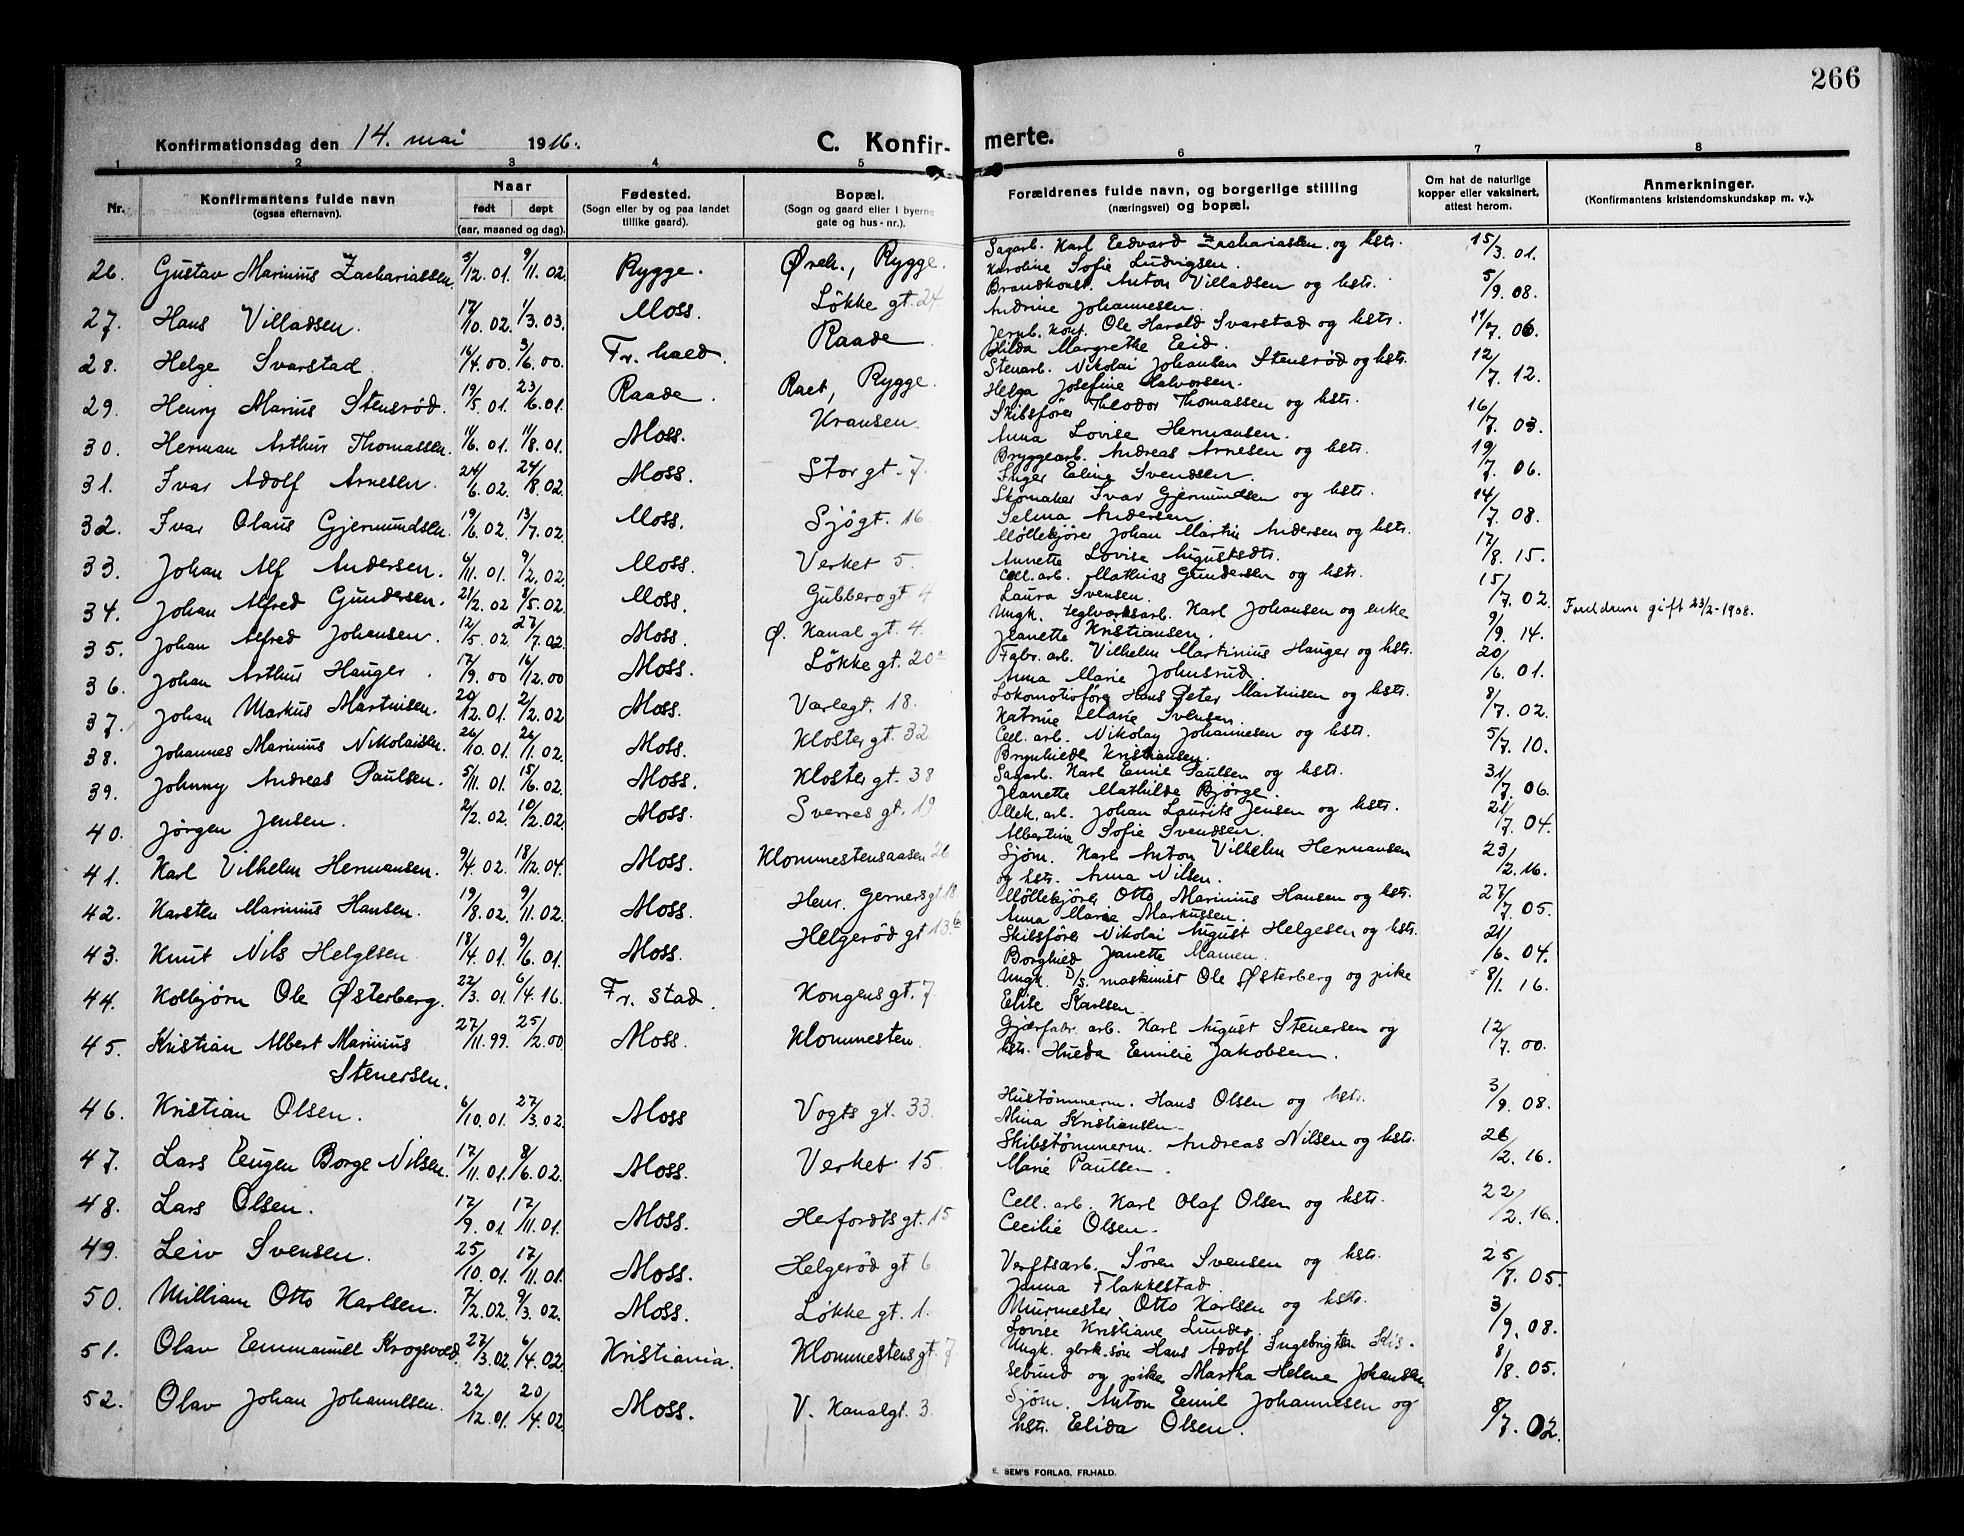 266
Konfirmationsdag den 14. mai 1916. C. Konfir- merte.
1 2 3 4 5 6 7 8
Nr. Konfirmantens fulde navn (ogsaa efternavn). Naar født døpt (aar, maaned og dag). Fødested. (Sogn eller by og paa landet tillike gaard). Bopæl. (Sogn og gaard eller i byerne gate og hus-nr.). Forældrenes fulde navn, og borgerlige stilling (næringsvei) og bopæl. Om hat de naturlige kopper eller vaksinert, attest herom. Anmerkninger. (Konfirmantens kristendomskundskap m. v.).
26. Gustav Marinius Zachariassen. 3/12. 01. 9/11. 02. Rygge. Øreh., Rygge. Sagarb. Karl Edvard Zachariassen og hstr. 15/3. 01.
Karoline Sofie Ludvigsen.
27. Hans Villadsen. 17/10. 02. 1/3. 03. Moss. Løkke gt. 24 Brandkonst. Anton Villadsen og hstr. 5/9. 08.
Andrine Johannesen.
28. Helge Svarstad. 16/4. 00. 3/6. 00. Fr. hald. Raade Jernb. konf. Ole Harald Svarstad og hstr. 11/7. 06.
Hilda Margrethe Eeid.
29. Henry Marius Stensrød. 19/5. 01. 23/6. 01. Raade. Raet, Rygge. Stenarb. Nikolai Johansen Stensrød og hstr. 12/7. 12.
Helga Josefine Halvorsen.
30. Herman Arthur Thomassen. 11/6. 01. 11/8. 01. Moss. Kransen. Skibsfører Theodor Thomassen og hstr. 16/7. 03.
Anna Lovise Hermansen.
31. Ivar Adolf Arnesen. 24/6. 02. 24/8. 02. Moss. Stor gt. 7. Bryggearb. Andreas Arnesen og hstr. 19/7. 06.
Inger Eline Svendsen.
32. Ivar Olaus Gjermundsen. 19/6. 02. 13/7. 02. Moss. Sjøgt. 16. Skomaker Ivar Gjermundsen og hstr. 14/7. 08.
Selma Andersen
33. Johan Alf Andersen. 6/11. 01. 9/2. 02. Moss. Verket 5. Møllekjører Johan Martin Andersen og hstr. 17/8. 15.
Annette Lovise Augustsdtr.
34. Johan Alfred Gundersen. 21/2. 02 8/5. 02. Moss. Gubbero gt 4 Cell. arb. Mathias Gundersen og hstr. 15/7. 02.
Laura Svensen.
35. Johan Alfred Johansen. 12/5. 02. 27/7. 02. Moss. Ø. Kanal gt. 4. Ungk. teglverksarb. Karl Johansen og enke 9/9. 14. Foreldrene gift 23/2-1908.
Jeanette Kristiansen.
36. Johan Arthur Hauger. 17/9. 00 16/12. 00 Moss. Løkke gt. 20a Fabr. arb. Vilhelm Martinius Hauger og hstr. 20/6. 01.
Anna Marie Johnsrud.
37. Johan Markus Martinisen. 20/12. 01. 2/2. 02 Moss. Varlegt. 18. Lokomotivfører Hans Peter Martinisen og hstr. 8/7. 02.
Katrine Marie Svensen.
38. Johannes Marinius Nikolaisen. 26/10. 01. 24/11. 02. Moss. Kloster gt. 32 Cell. arb. Nikolay Johannesen og hstr. 5/7. 10.
Brynhilde Kristiansen.
39. Johnny Andreas Paulsen. 5/11. 01. 15/6. 02. Moss. Kloster gt. 38 Sagarb. Karl Emil Paulsen og hstr. 31/7. 06.
Jeanette Mathilde Bjørge.
40. Jørgen Jensen. 2/2. 02. 10/2. 02. Moss. Sverres gt. 19 Mek. arb. Johan Laurits Jensen og hstr. 21/7. 04.
Albertine Sofie Svendsen.
41. Karl Vilhelm Hermansen. 9/4. 02. 18/12. 04. Moss. Klommestensaasen 26. Sjøm. Karl Anton Vilhelm Hermansen 23/2. 16.
og hstr. Anna Nilsen.
42. Karsten Marinius Hansen. 19/8. 02. 9/11. 02. Moss. Henr. Gernersgt. 18 Møllekjører Otto Marinius Hansen og hstr. 27/7. 05.
Anna Marie Markussen.
43. Knut Nils Helgesen. 18/4. 01. 9/6. 01. Moss. Helgerød gt 13.b Skibsfører Nikolai August Helgesen og hstr. 21/6. 04.
Borghild Jeanette Mamen.
44. Kolbjørn Ole Østerberg. 22/3. 01. 6/4. 16. Fr. stad. Kongens gt. 7 Ungk. D/s. maskinist Ole Østerberg og pike 8/1. 16.
Elise Karlsen.
45. Kristian Albert Marinius 27/11. 99. 25/2. 00. Moss. Klommesten. Gjærfabr. arb. Karl August Stenersen og 12/7. 00.
Stenersen. hstr. Hulda Emilie Jakobsen.
46. Kristian Olsen. 6/10. 01. 27/3. 02. Moss Vogts gt. 33. Hustømmerm. Hans Olsen og hstr. 3/9. 08.
Mina Kristiansen.
47. Lars Eugen Borge Nilsen. 17/11. 01. 8/6. 02. Moss. Verket 15. Skibstømmerm. Andreas Nilsen og hstr. 26/2. 16.
Marie Paulsen.
48. Lars Olsen. 17/9. 01. 17/11. 01. Moss. Herfordts gt. 15 Cell. arb. Karl Olaf Olsen og hstr. 22/2. 16.
Cecilie Olsen.
49. Leiv Svensen. 25/10. 01. 17/11. 01. Moss. Helgerød gt 6. Verftsarb. Søren Svensen og hstr. 25/7. 05.
Janna Flakkestad.
50. William Otto Karlsen. 7/2. 02. 9/3. 02. Moss. Løkke gt. 1. Murmester Otto Karlsen og hstr. 3/9. 08.
Lovise Kristiane Lunder.
51. Olav Emmanuel Krogsvold. 27/3. 02. 6/4. 02. Kristiania. Klommestens gt. 7 Ungk. gbrk. søn Hans Adolf Ingebrigtsen 8/8. 05.
sebund og pike Martha Helene Johansen
52. Olav Johan Johannesen. 22/12. 01. 20/4. 02. Moss. V. Kanalgt. 3. Sjøm. Anton Emil Johannesen og 8/7. 02.
hstr. Elida Olsen.
E. SEM'S FORLAG, FR.HALD.